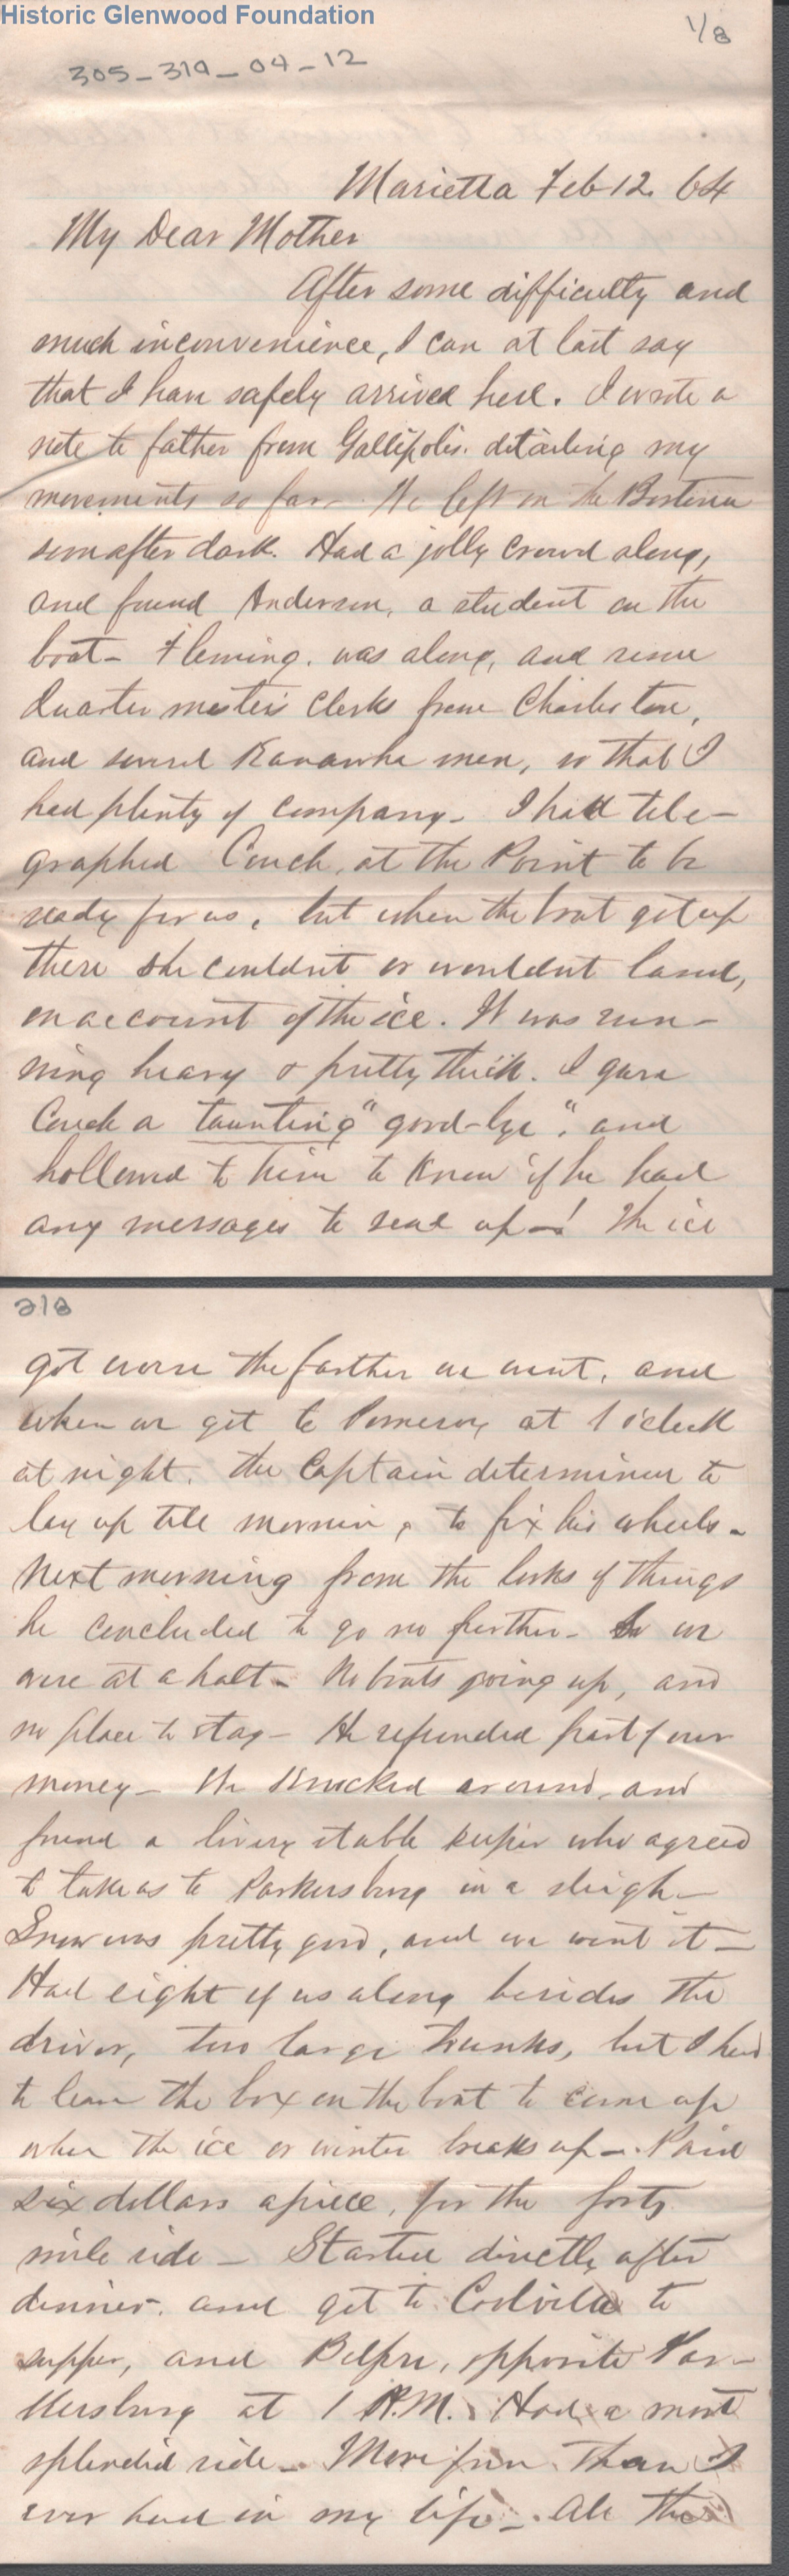 Historic Glenwood Foundation
1/8
305-319-04-12
Marietta Feb 12. 64
My Dear Mother
After some difficulty and
much inconvenience, I can at last say
that I have safely arrived here. I wrote a
note to father from Gallipolis. detailing my
movements so far - We left on the Bostona
soon after dark. Had a jolly crowd along,
and found Anderson, a student on the
boat - Fleming. was along, and some
Quarter master's Clerks from Charleston,
and several Kanawha men, so that I
had plenty of company - I had tele-
graphed Couch, at the Point to be
ready for us, but when the boat got up
there she couldn't or wouldn't land,
on account of the ice. It was run-
ning heavy & pretty thick. I gave
Couch a taunting "good-bye", and
hollered to him to know if he had
any messages to send up -! The ice
2/8
got worse the farther we went, and
when we got to Pomeroy at 1 o'clock
at night. the Captain determined to
lay up till morning, to fix his wheels -
Next morning from the looks of things
he concluded to go no further - So we
were at a halt - No boats going up, and
no place to stay - He refunded part of our
money - We knocked around, and
found a livery stable keeper who agreed
to take us to Parkersburg in a sleigh -
Snow was pretty good, and we went it -
Had eight of us along besides the
driver, two large trunks, but I had
to leave the box on the boat to come up
when the ice or winter breaks up -. Paid
six dollars apiece, for the forty
mile ride - Started directly after
dinner, and got to Coolville to
supper, and Belpre, opposite Par-
kersburg at 1 A.M. Had a most
splendid ride - More fun than I
ever had in my life -. All the